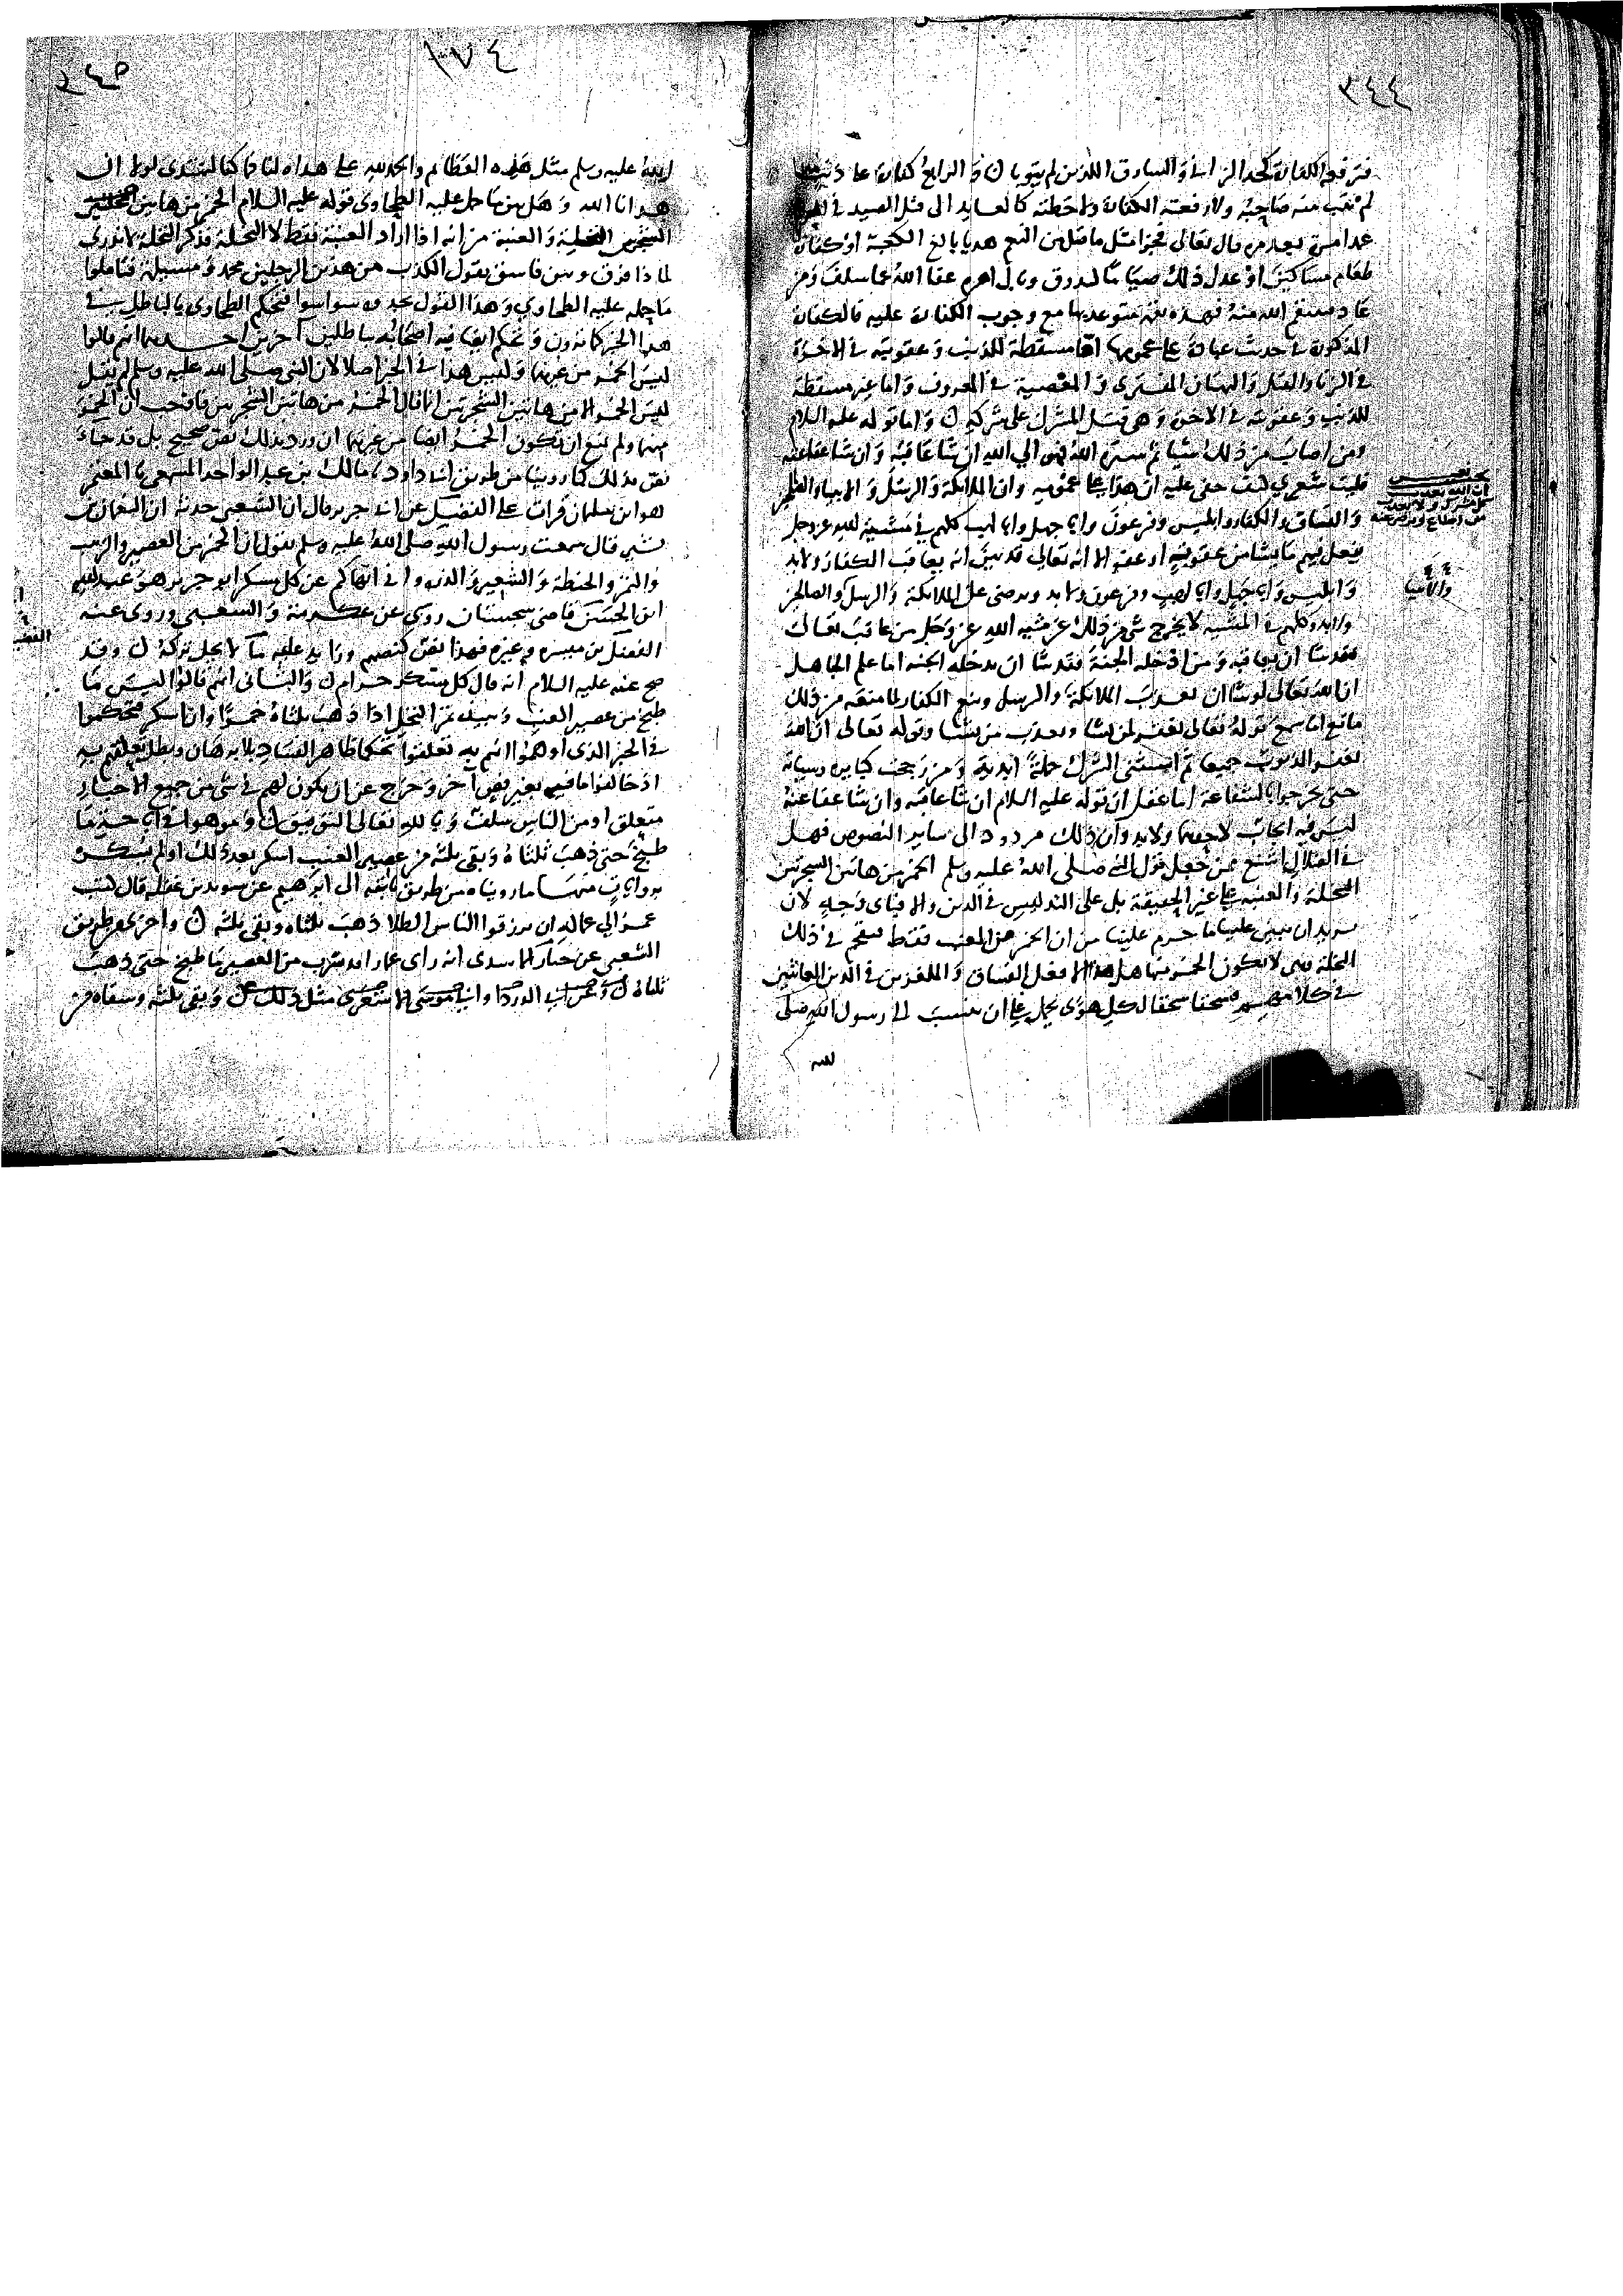 ٣٤٤
لم يتب منه صاحبه ولا رفعته الكفارة ولا حطته كالعايد الى قتل الصيد في
عدا مرة بعد مرة قال تعالى فجزا مثل ما قتل من النعم هديا بالغ الكعبة او كفارة
طعام مساكين او عدل ذلك صياما ليذوق وبال امره عفا الله عما سلف ومن
عاد فينتقم الله منه فهذه نقمة متوعد بها مع وجوب الكفارة عليه فالكفارة
المذكورة في حديث عبادة على عمومها انها مسقطة للذنب وعقوبته في الاخرة
في الزنا والقتل والبهتان المفترى والمعصية في المعروف واما غير مسقطة
للذنب وعقوبته في الاخرة وهي قتل المشرك على شركه واما قوله عليه السلام
ومن اصاب من ذلك شيا ثم ستره الله فهو الى الله ان شا عاقبه وان شا عفا عنه
فليت شعري كيف خفي عليه ان هذا على عمومه وان الملائكة والرسل والانبيا والصالحين
والفساق والكفار وابليس وفرعون وابا جهل وابا لهب كلهم في مشية لله عز وجل
يفعل فيهم ما يشا من عقوبة او عفو الا انه تعالى قد بين انه يعاقب الكفار ولا بد
وابليس وابا جهل وابا لهب وفرعون ولا بد ويرضى على الملائكة والرسل والصالحين
والانبيا
ولا بد وكلهم في المشية لا يخرج شي من ذلك عن مشية الله عز وجل من عاقب تعالى
فقد شا ان يعاقبه ومن ادخله الجنة فقد شا ان يدخله الجنة اما علم الجاهل
ان الله تعالى لو شا ان يعذب الملائكة والرسل وينعم الكفار لما منعه من ذلك
مانع اما سمع قوله تعالى يغفر لمن يشا ويعذب من يشا وقوله تعالى ان الله
يغفر الذنوب جميعا ثم استثنى الشرك جملة ابدية ومن رجحت كبايره وسياته
حتى يخرجوا بالشفاعة اما عقل ان قوله عليه السلام ان شا عاقبه وان شا عفا عنه
ليس فيه ايجاب لاحدهما ولا بد وان ذلك مردود الى ساير النصوص فهل
في الضلال اشنع ممن جعل قول النبي صلى الله عليه وسلم الخمر من هاتين الشجرتين
النخلة والعنبة على غير الحقيقة بل على التدليس في الدين والا فباى وجه لان
يريد ان يبين علينا ما حرم علينا من ان الخمر من العنب فقط فيقحم في ذلك
النخلة وهي لا يكون الخمر منها هل هذا الا فعل الفساق والملغزين في الدين العابثين
في كلامهم فسحقا سحقا لكل هوى يحمل على ان ينسب الى رسول الله صلى
الله
١٠٧٤
٣٤٥
الله عليه وسلم مثل هذه العظايم والحمد لله على هداه لنا فما كنا لنهتدى لولا ان
هدانا الله وهل بين ما حمل عليه الطحاوى قوله عليه السلام الخمر من هاتين
الشجرتين النخلة والعنبة من انه انما اراد العنبة فقط لا النخلة فذكر النخلة لا ندرى
لماذا فرق وبين فاسق يقول الكذب من هذين الرجلين محمد ومسيلمة فتاملوا
ما حمله عليه الطحاوي وهذا القول تجدوه سوا سوا فتحكم الطحاوى بالباطل في
هذا الخبر كما ترون وتحكم ايضا فيه اصحابه بباطلين آخرين احدهما انهم قالوا
ليس الخمر من غيرهما وليس هذا في الخبر اصلا لان النبي صلى الله عليه وسلم لم يقل
ليس الخمر الا من هاتين الشجرتين انما قال الخمر من هاتين الشجرتين فاوجب ان الخمر
منهما ولم يمنع ان تكون الخمر ايضا من غيرهما ان ورد بذلك نص صحيح بل قد جاء
نص بذلك كما روينا من طريق ابي داود نا مالك بن عبد الواحد المسمعي نا المعتمر
هو ابن سليمان قرات على الفضيل عن ابي جرير قال ان الشعبي حدثه ان النعمان بن
بشير قال سمعت رسول الله صلى الله عليه وسلم يقول ان الخمر من العصير والزبيب
والتمر والحنطة والشعير والذرة واني انهاكم عن كل مسكر ابو جرير هو عبد الله
ابن الحسين قاضي سجستان روى عن عكرمة والشعبي وروى عنه
الفضل بن ميسرة وغيره فهذا نص كنصهم وزايد عليه ما لا يحل تركه وقد
صح عنه عليه السلام انه قال كل مسكر حرام والثاني انهم قالوا ليس ما
طبخ من عصير العنب ونبيذ تمر النخل اذا ذهب ثلثاه خمرا وان اسكر فتحكموا
في الخبر الذى اوهموا انهم به تعلقوا تحكما ظاهر الفساد بلا برهان وبطل تعلقهم به
اذ خالفوا ما فيه بغير نص آخر وخرج عن ان يكون لهم في شي من جميع الاخبار
متعلق او من الناس سلف وبالله تعالى التوفيق وموهوا في اباحة ما
طبخ حتى ذهب ثلثاه وبقي ثلثه من عصير العنب اسكر بعد ذلك او لم يسكر
بروايات منها ما رويناه من طريق ثابتة الى ابرهيم عن سويد بن غفلة قال كتب
عمر الى عماله ان يرزقوا الناس الطلا ذهب ثلثاه وبقي ثلثه واخرى من طريق
الشعبي عن حيان الاسدى انه راى عمارا قد شرب من العصير ما طبخ حتى ذهب
ثلثاه وعن ابي الدردا وابي موسى الاشعري مثل ذلك وبقي ثلثه وسقاه من